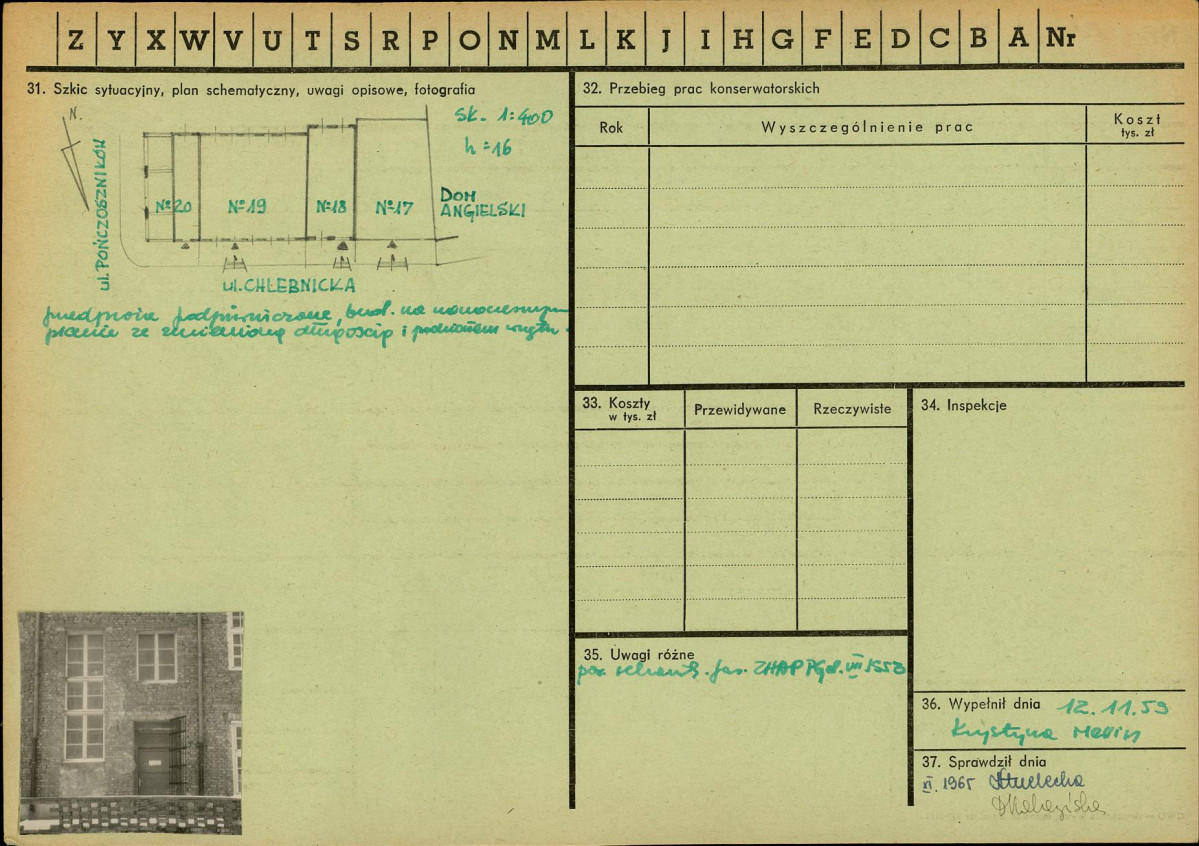 Z Y X W V U T S R P O N M L K J I H G F E D C B A Nr
31. Szkic sytuacyjny, plan schematyczny, uwagi opisowe, fotografia
N.
sk. 1:400
h=16
ul. POŃCZOSZNIKÓW
№20 №19 №18 №17
DOM
ANGIELSKI
ul. CHLEBNICKA
przedproża podpiwniczone, bud. na nowoczesnym
planie ze zmienioną długością i
32. Przebieg prac konserwatorskich
Rok Wyszczególnienie prac Koszt
tys. zł
33. Koszty
w tys. zł
Przewidywane Rzeczywiste
34. Inspekcje
35. Uwagi różne
ZHAP PGd. VII
36. Wypełnił dnia 12.11.59
Krystyna
37. Sprawdził dnia
XI. 1965